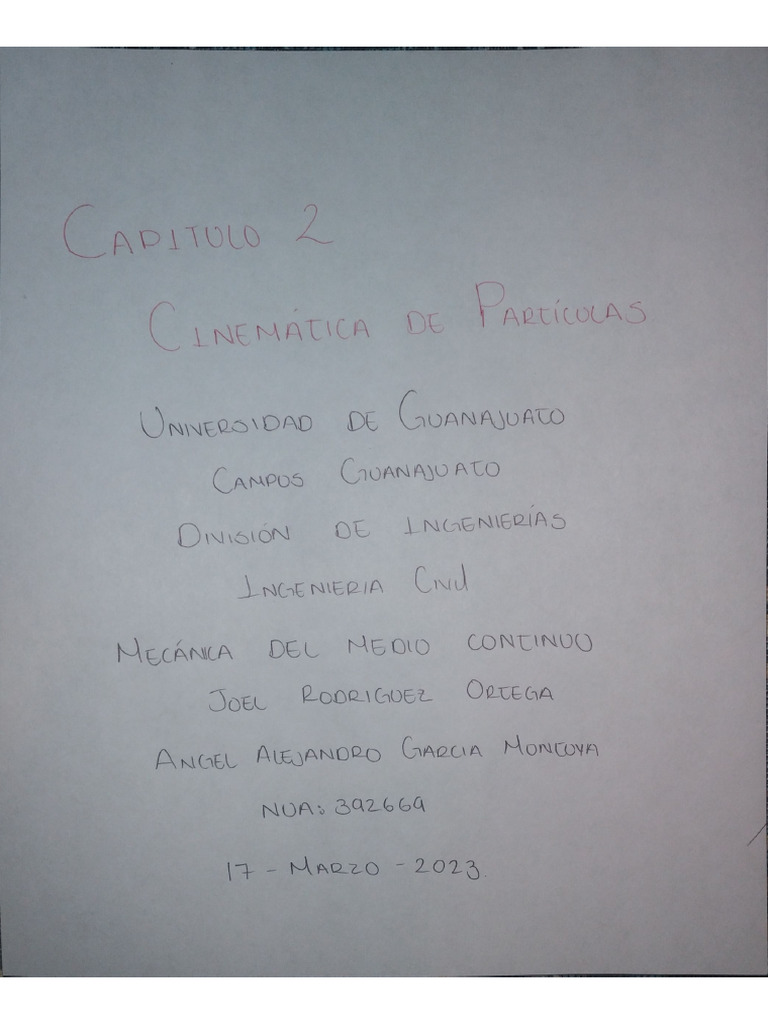 CAPITULO 2
CINEMÁTICA DE PARTÍCULAS
UNIVERSIDAD DE GUANAJUATO
CAMPUS GUANAJUATO
DIVISIÓN DE INGENIERÍAS
INGENIERIA CIVIL
MECÁNICA DEL MEDIO CONTINUO
JOEL RODRIGUEZ ORTEGA
ANGEL ALEJANDRO GARCIA MONTOYA
NUA: 392669
17 - MARZO - 2023.